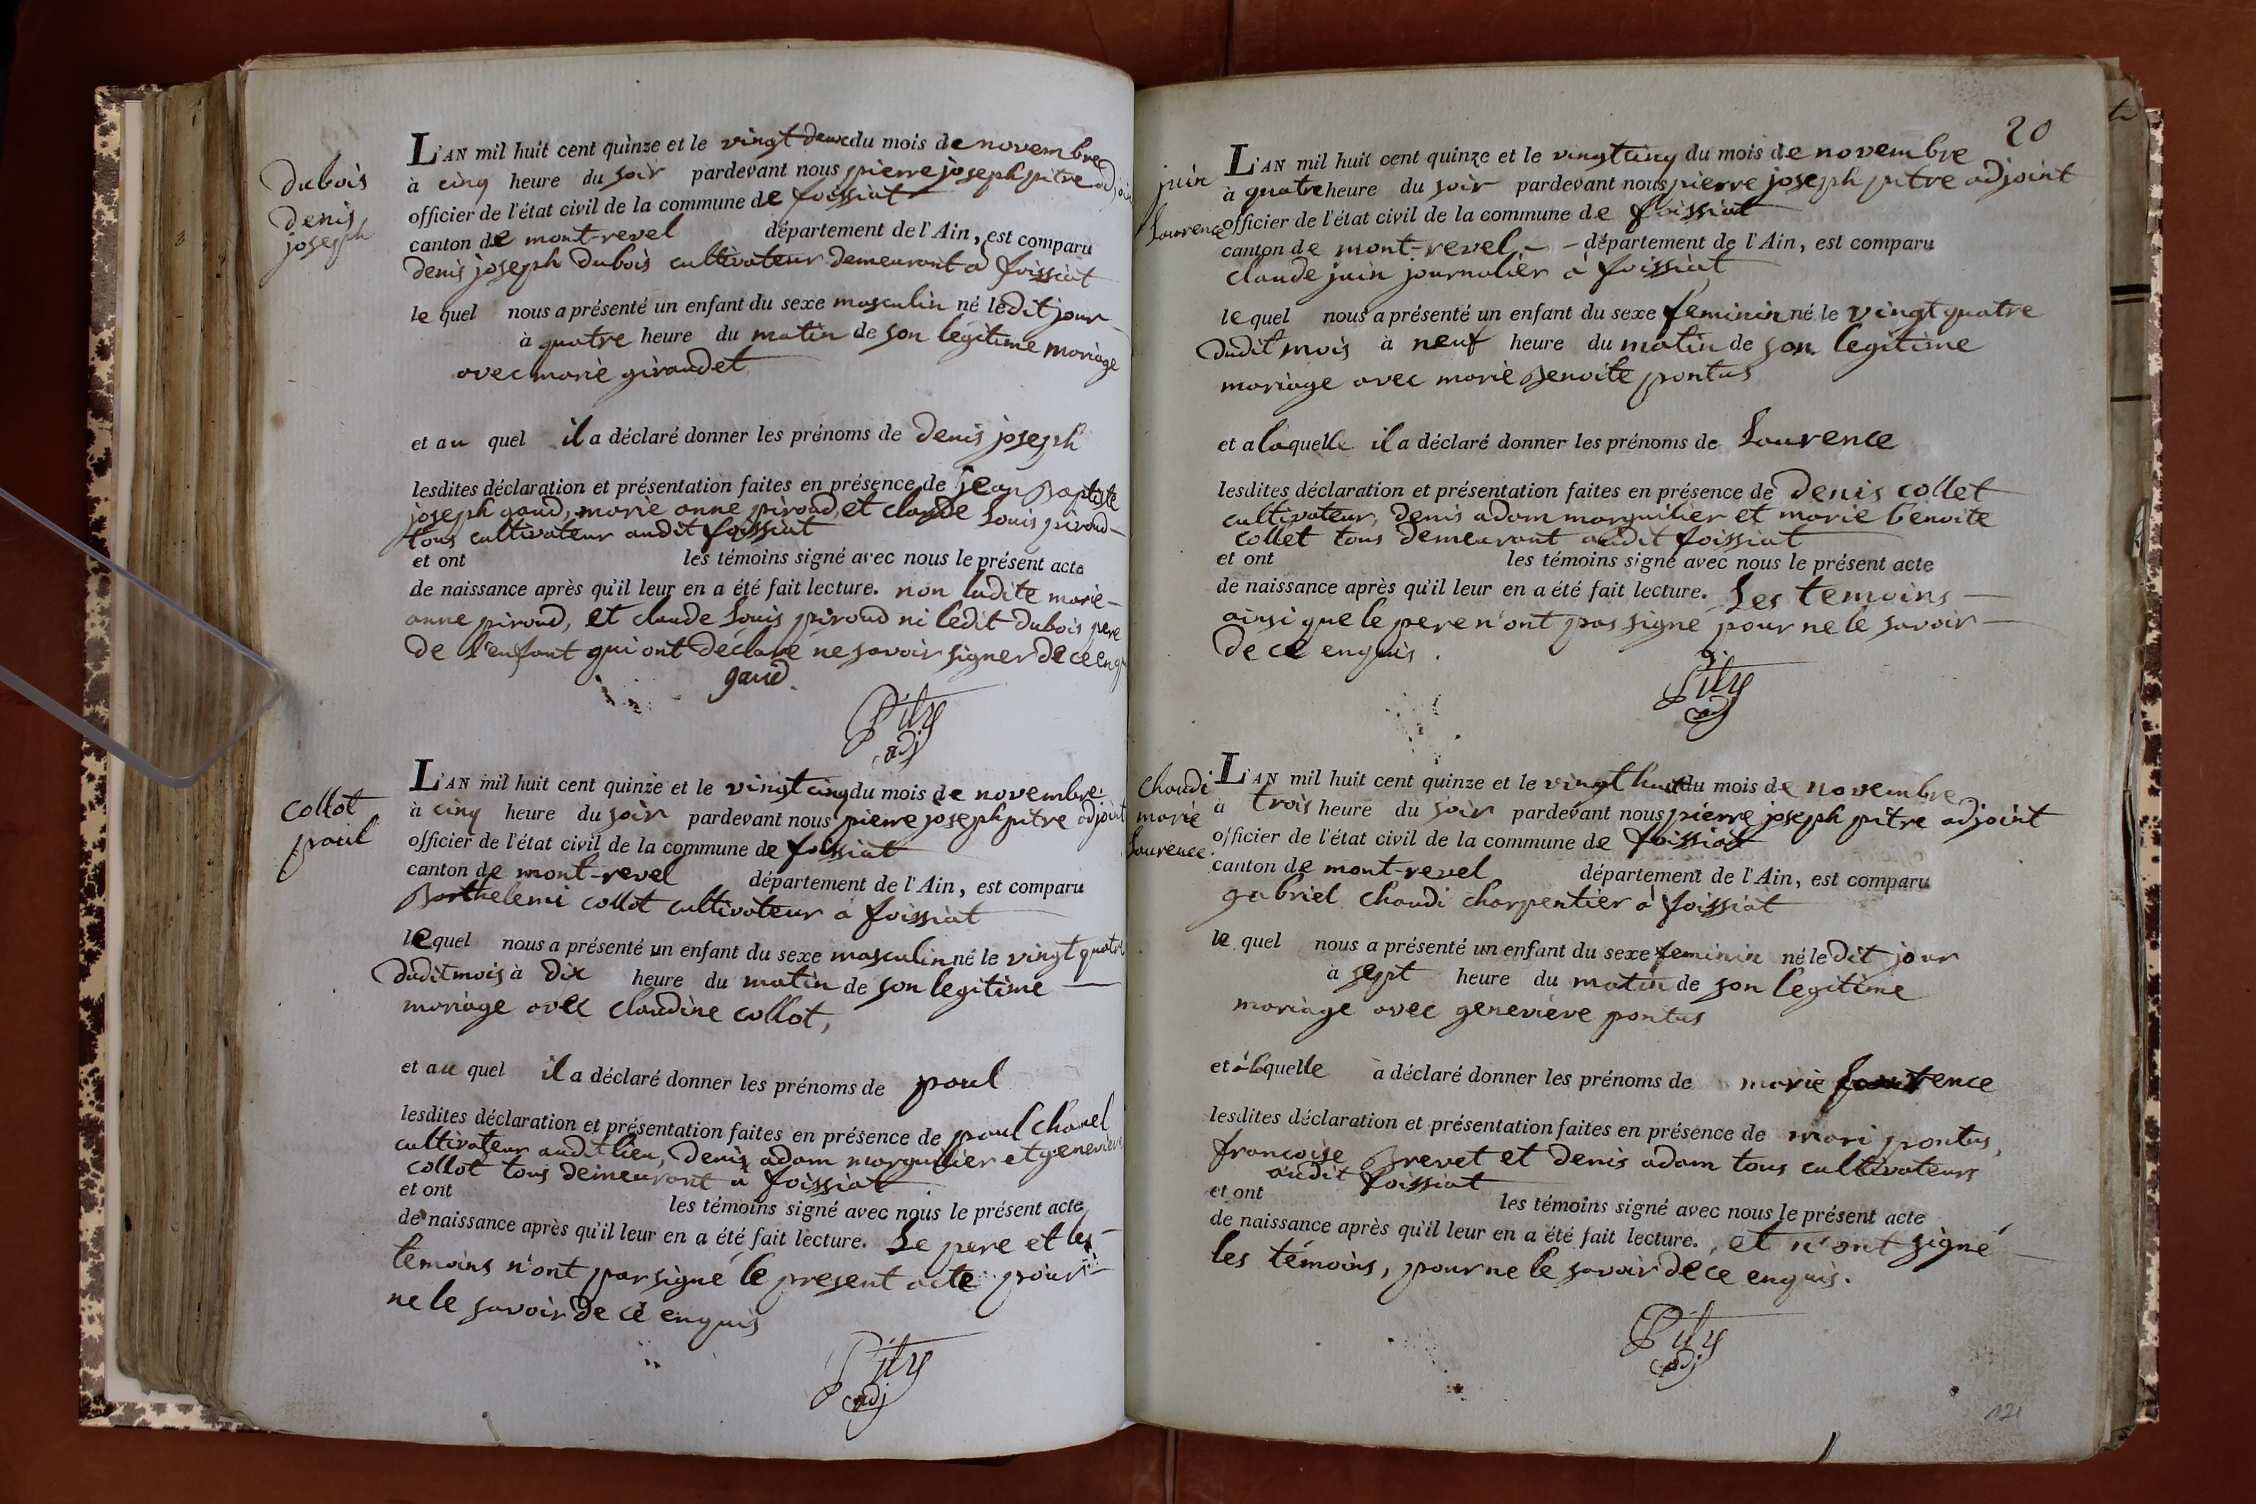 dubois
denis
joseph
L'AN mil huit cent quinze et le vingt deux du mois de novembre
à cinq heure du soir pardevant nous pierre joseph pitre adjoint
officier de l'état civil de la commune de foissiat
canton de mont-revel département de l'Ain, est comparu
denis joseph Dubois cultivateur demeurant à foissiat
le quel nous a présenté un enfant du sexe masculin né ledit jour
à quatre heure du matin de son légitime mariage
avec marie giraudet
et au quel il a déclaré donner les prénoms de denis joseph
lesdites déclaration et présentation faites en présence de jean Baptiste
joseph gaud, marie anne piroud, et claude Louis piroud
tous cultivateur audit foissiat
et ont les témoins signé avec nous le présent acte
de naissance après qu'il leur en a été fait lecture. non ladite marie
anne piroud, et claude Louis piroud ni ledit dubois pere
de l'enfant qui ont déclaré ne savoir signer de ce enquis
gaud.
Pitre
adj
collot
paul
L'AN mil huit cent quinze et le vingt cinq du mois de novembre
à cinq heure du soir pardevant nous pierre joseph pitre adjoint
officier de l'état civil de la commune de foissiat
canton de mont-revel département de l'Ain, est comparu
Barthelemi collot cultivateur à foissiat
le quel nous a présenté un enfant du sexe masculin né le vingt quatre
dudit mois à dix heure du matin de son legitime
mariage avec claudine collot,
et au quel il a déclaré donner les prénoms de paul
lesdites déclaration et présentation faites en présence de paul Chanel
cultivateur audit lieu, denis adam marguilier et genevieve
collot tous demeurant a foissiat
et ont les témoins signé avec nous le présent acte
de naissance après qu'il leur en a été fait lecture. Le pere et les
temoins n'ont pas signé le present acte pour
ne le savoir de ce enquis
Pitre
adj
20
juin
Laurence
L'AN mil huit cent quinze et le vingt cinq du mois de novembre
à quatre heure du soir pardevant nous pierre joseph pitre adjoint
officier de l'état civil de la commune de foissiat
canton de mont-revel département de l'Ain, est comparu
claude juin journalier à foissiat
le quel nous a présenté un enfant du sexe feminin né le vingt quatre
dudit mois à neuf heure du matin de son legitime
mariage avec marie Benoite pontus
et a laquelle il a déclaré donner les prénoms de Laurence
lesdites déclaration et présentation faites en présence de Denis collet
cultivateur, denis adam marguilier et marie benoite
collet tous demeurant audit foissiat
et ont les témoins signé avec nous le présent acte
de naissance après qu'il leur en a été fait lecture. Les temoins
ainsi que le pere n'ont pas signé pour ne le savoir
de ce enquis.
Pitre
adj
chaudi
marie
Laurence
L'AN mil huit cent quinze et le vingt huit du mois de novembre
à trois heure du soir pardevant nous pierre joseph pitre adjoint
officier de l'état civil de la commune de foissiat
canton de mont-revel département de l'Ain, est comparu
gabriel chaudi charpentier à foissiat
le quel nous a présenté un enfant du sexe feminin né ledit jour
à sept heure du matin de son legitime
mariage avec geneviève pontus
et à laquelle a déclaré donner les prénoms de marie laurence
lesdites déclaration et présentation faites en présence de mari pontus,
francoise Brevet et denis adam tous cultivateurs
audit foissiat
et ont les témoins signé avec nous le présent acte
de naissance après qu'il leur en a été fait lecture., et n'ont signé
les témoins, pour ne le savoir de ce enquis.
Pitre
adj
121